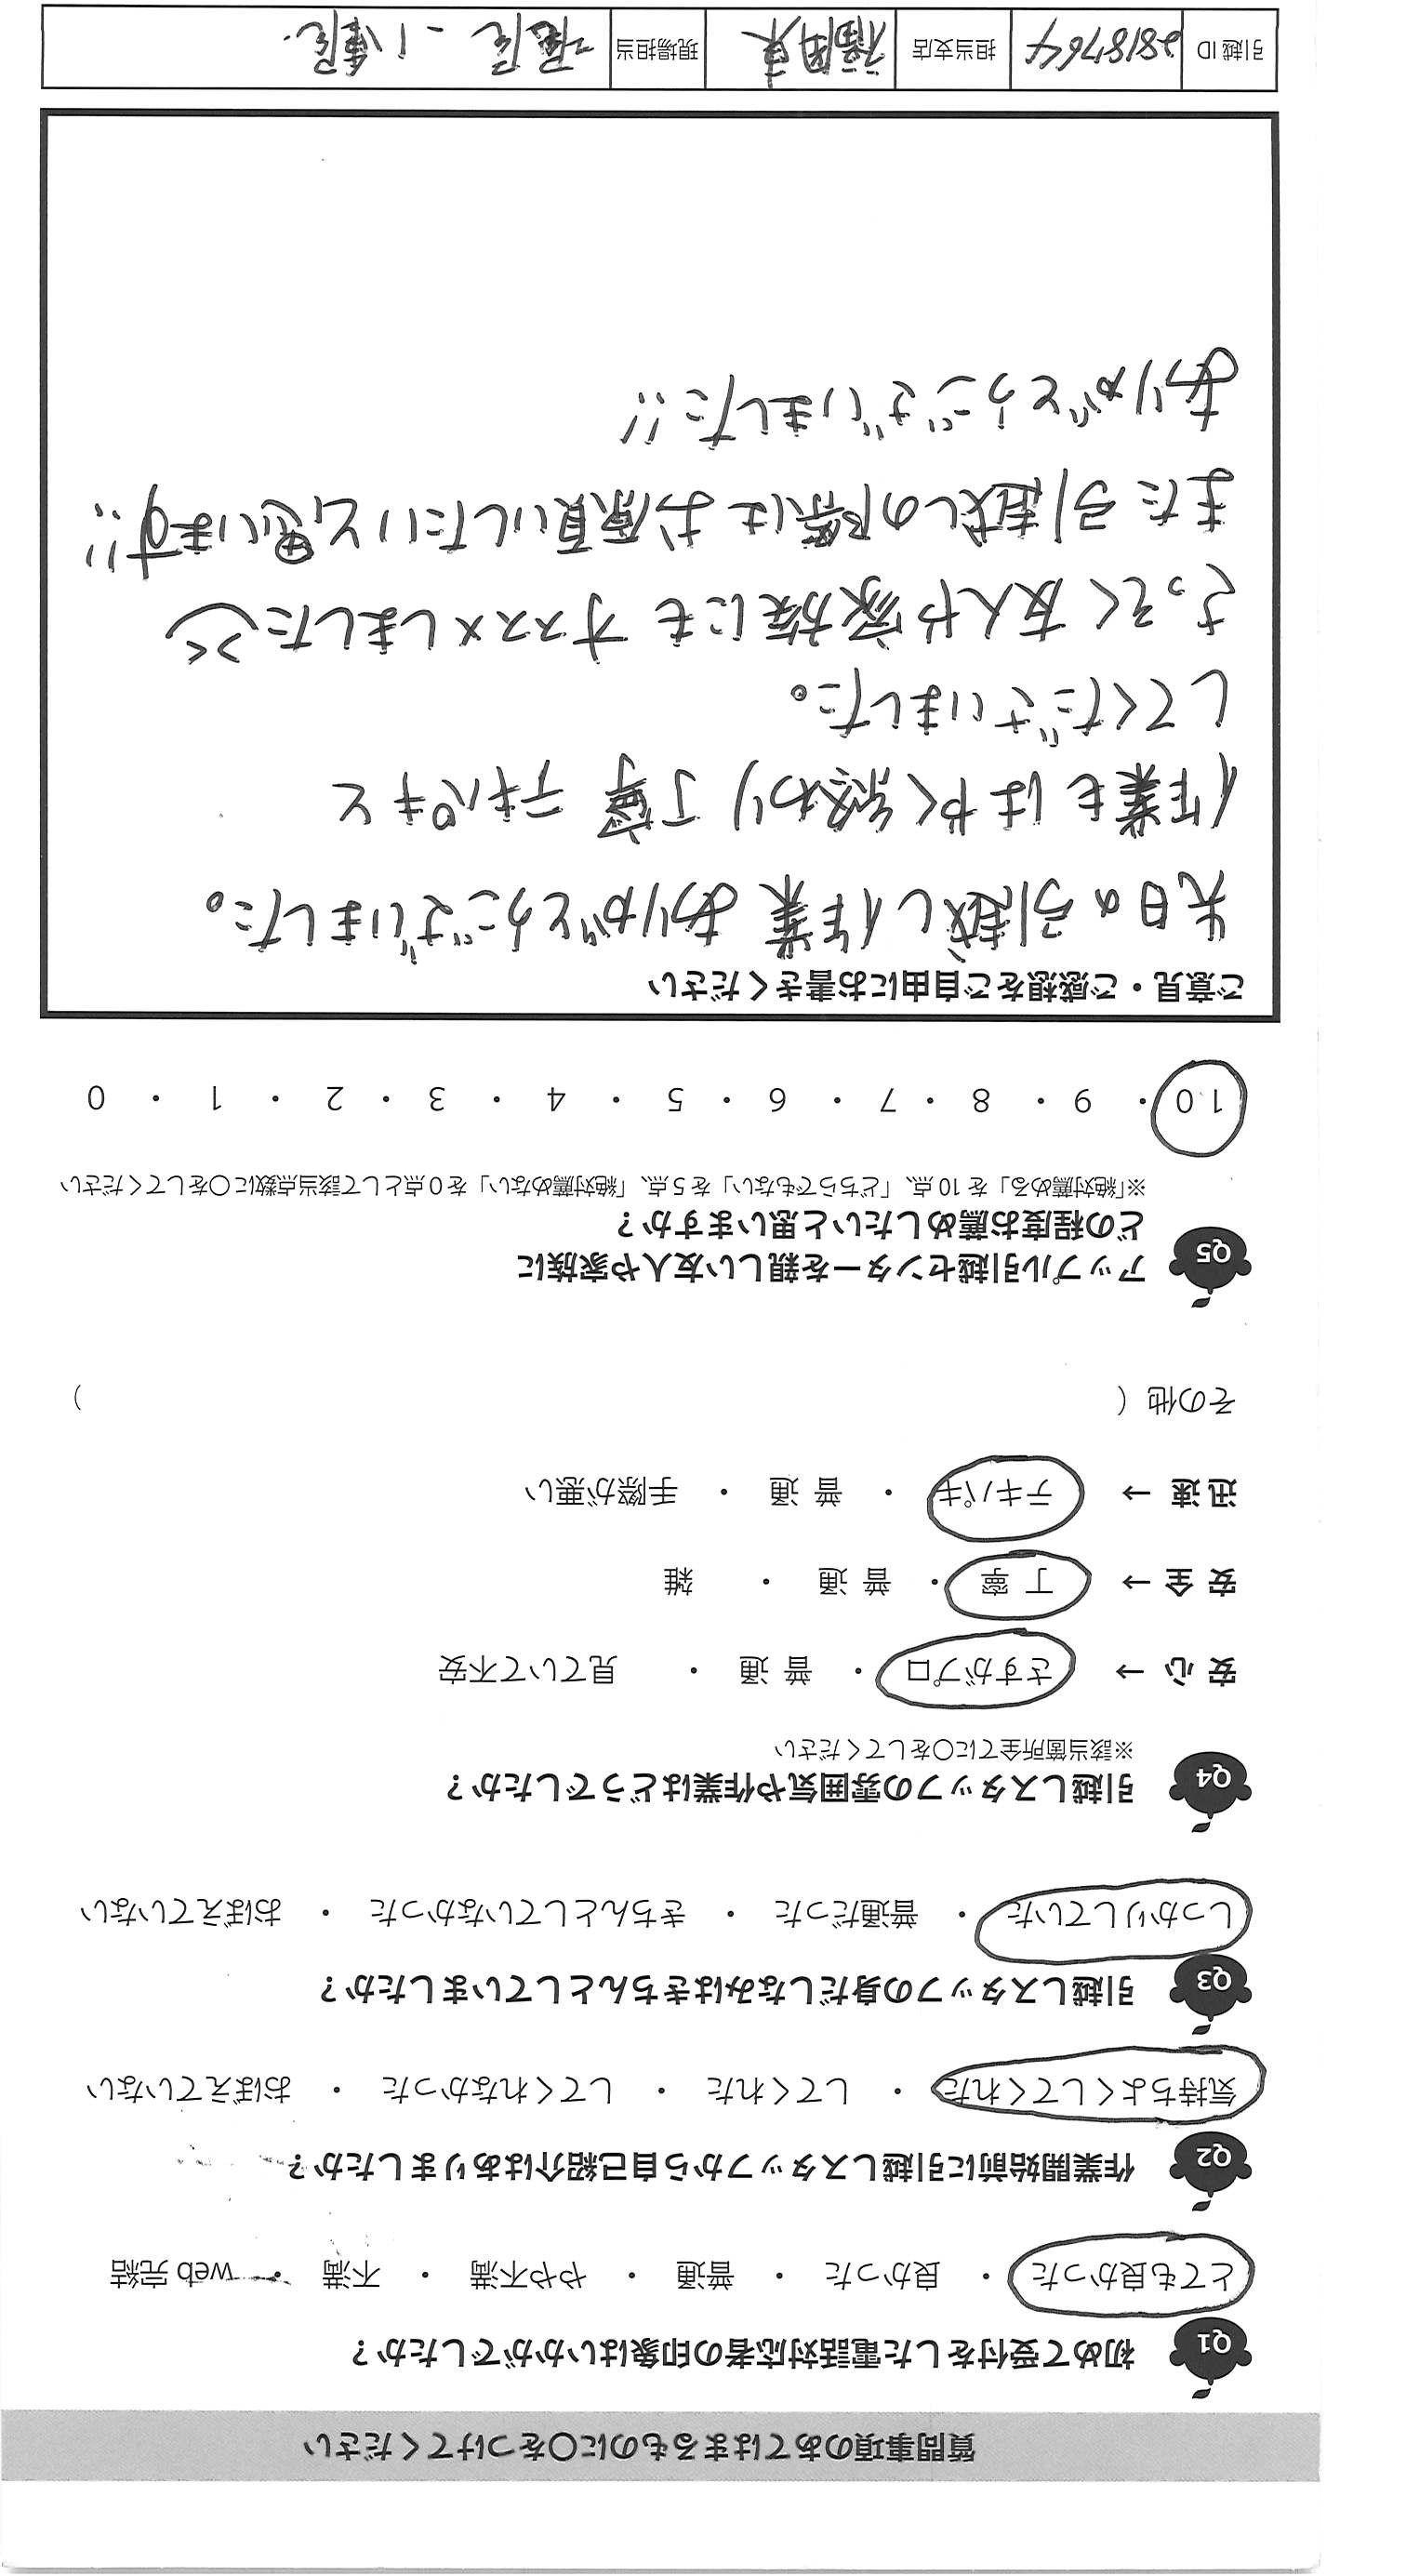 質問事項のあてはまるものに○をつけてください
Q1 初めて受付をした電話対応者の印象はいかがでしたか？
とても良かった ・ 良かった ・ 普通 ・ やや不満 ・ 不満 ・ web 完結
Q2 作業開始前に引越しスタッフから自己紹介はありましたか？
気持ちよくしてくれた ・ してくれた ・ してくれなかった ・ おぼえていない
Q3 引越しスタッフの身だしなみはきちんとしていましたか？
しっかりしていた ・ 普通だった ・ きちんとしていなかった ・ おぼえていない
Q4 引越しスタッフの雰囲気や作業はどうでしたか？
※該当箇所全てに○をしてください
安 心 → さすがプロ ・ 普 通 ・ 見ていて不安
安 全 → 丁 寧 ・ 普 通 ・ 雑
迅 速 → テキパキ ・ 普 通 ・ 手際が悪い
その他（ ）
Q5 アップル引越センターを親しい友人や家族に
どの程度お薦めしたいと思いますか？
※「絶対薦める」を 10 点、「どちらでもない」を 5 点、「絶対薦めない」を 0 点として該当点数に○をしてください
10 ・ 9 ・ 8 ・ 7 ・ 6 ・ 5 ・ 4 ・ 3 ・ 2 ・ 1 ・ 0
ご意見・ご感想をご自由にお書きください
先日の引越し作業 ありがとうございました。
作業もはやく終わり 丁寧 テキパキと
してくださいました。
さっそく 友人や家族にも オススメしました
また引越しの際は お願いしたいと思います!!
ありがとうございました!!
引越 ID 2818764 担当支店 福岡東 現場担当